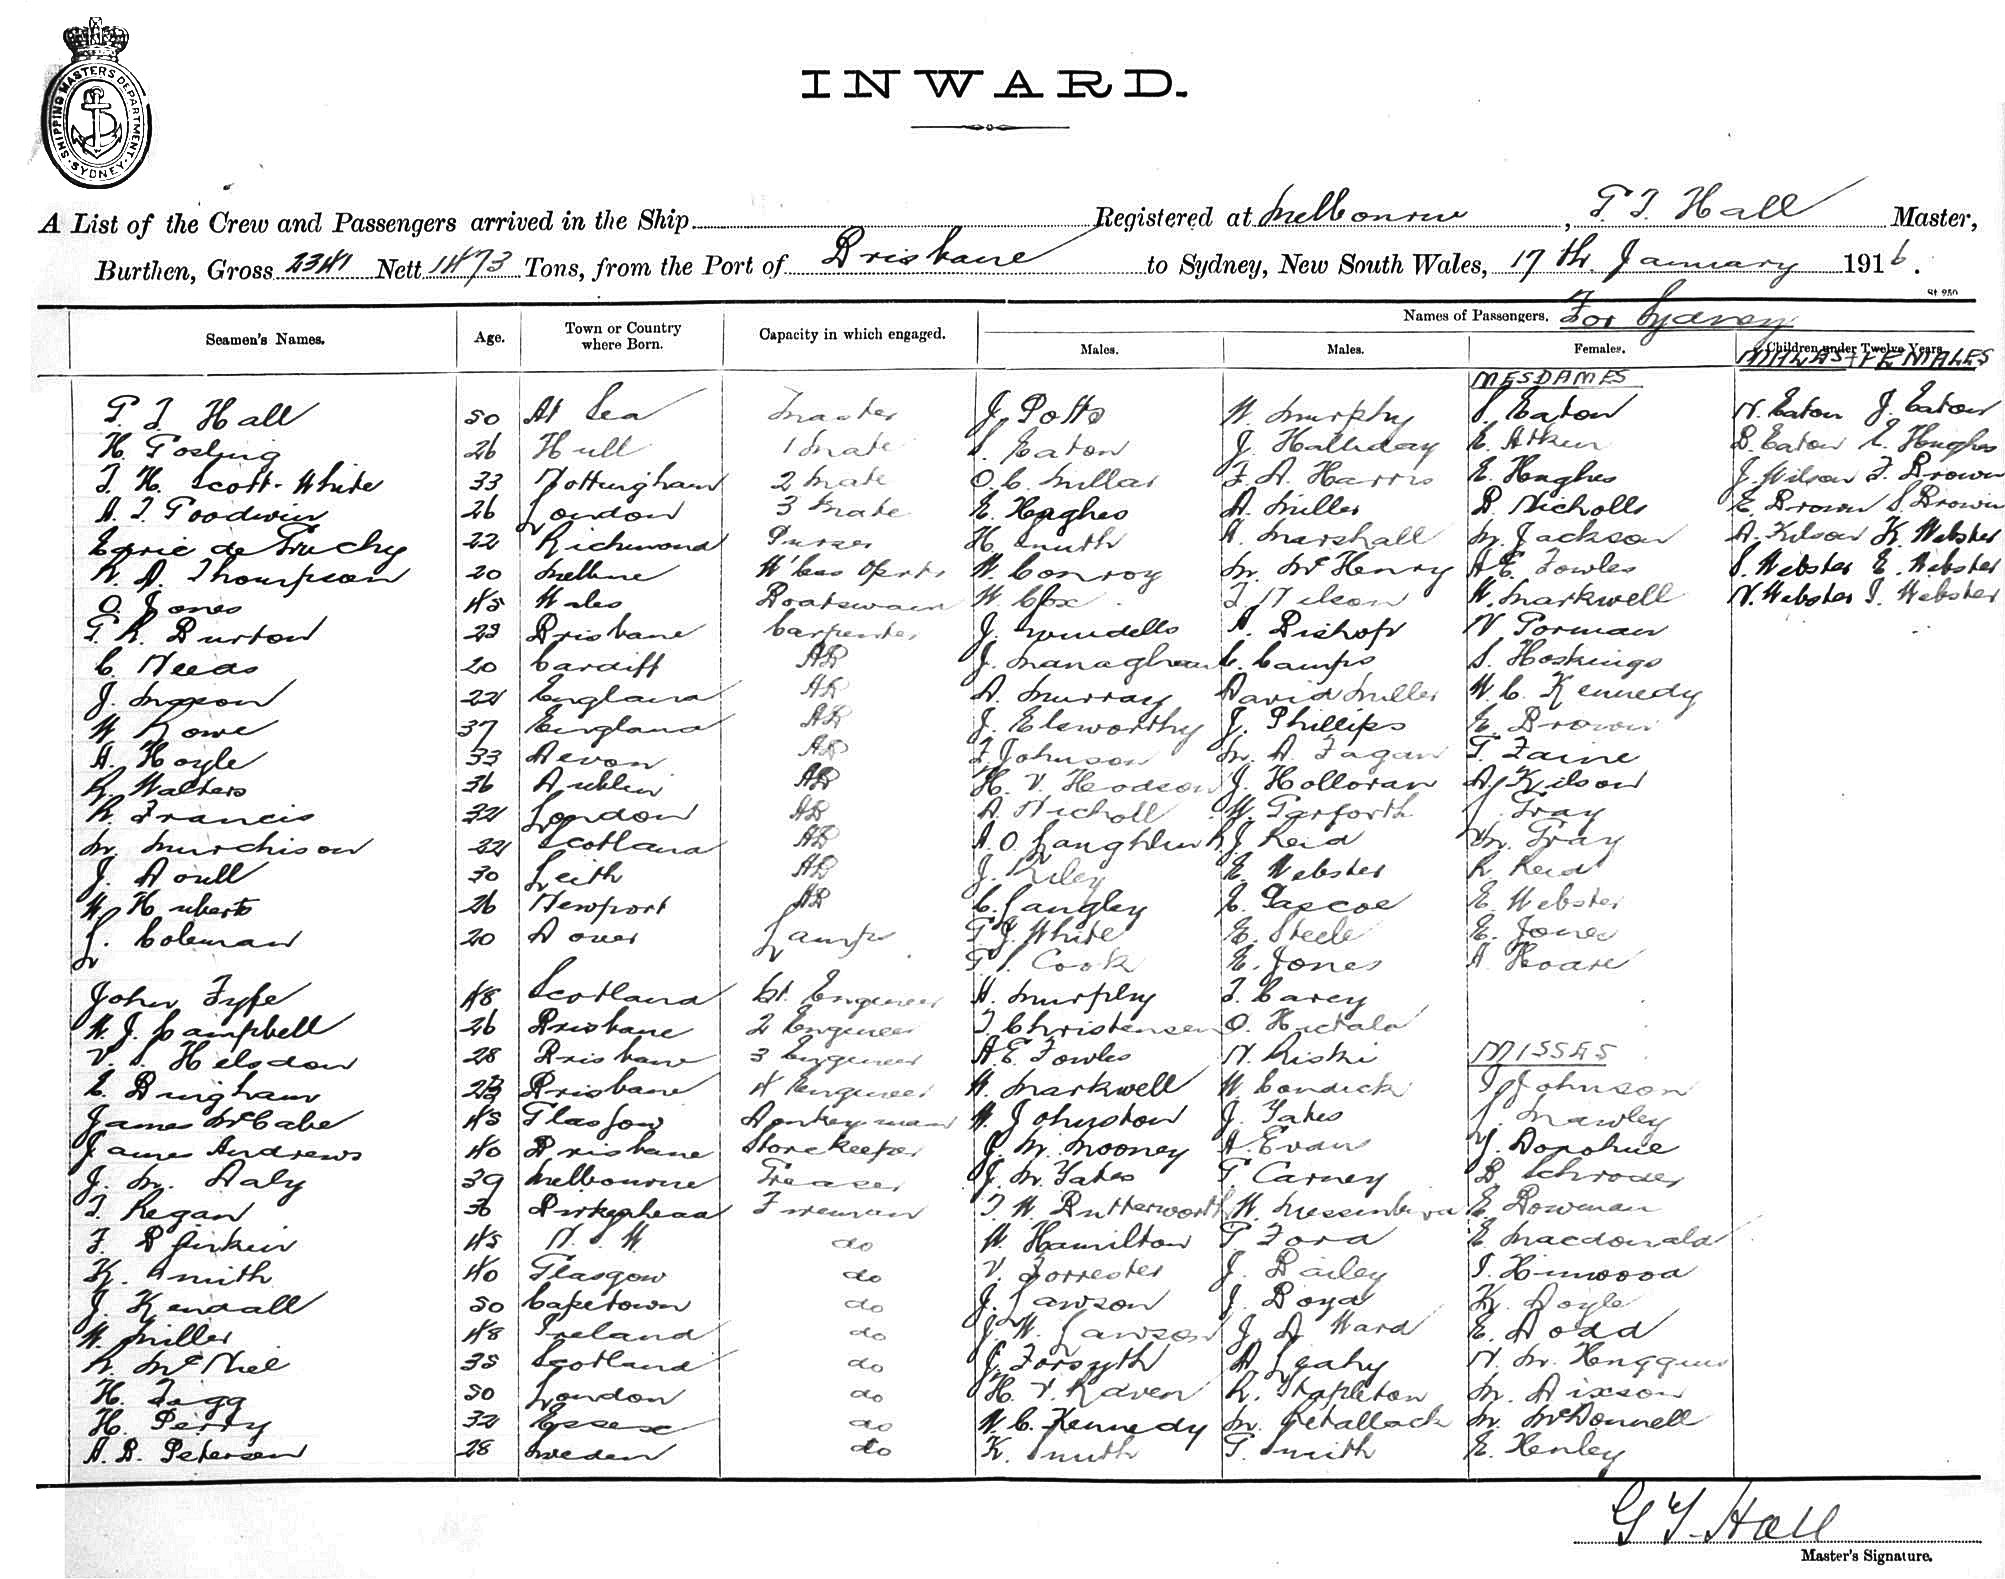 SHIPPING MASTERS DEPARTMENT. SYDNEY.
INWARD.
A List of the Crew and Passengers arrived in the Ship Registered at Melbourne, G. T. Hall Master,
Burthen, Gross 2341 Nett 1473 Tons, from the Port of Brisbane to Sydney, New South Wales, 17th January 1916.
St 950
Names of Passengers. For Sydney
Seamen's Names. Age. Town or Country where Born. Capacity in which engaged. Males. Males. Females. Children under Twelve Years.
MESDAMES MALES + FEMALES
G. T. Hall 50 At Sea Master J. Potts W. Murphy S. Eaton N. Eaton J. Eaton
H. Gosling 26 Hull 1 Mate S. Eaton J. Halliday E. Aitken D. Eaton E. Hughes
T. H. Scott-White 33 Nottingham 2 Mate O. C. Millar F. A. Harris E. Hughes J. Wilson F. Brown
A. J. Goodwin 26 London 3 Mate E. Hughes A. Miller B. Nicholls E. Brown S. Brown
Edric de Gruchy 22 Richmond Purser H. Smith A. Marshall M. Jackson A. Kilson K. Webster
R. A. Thompson 20 Melbne W'less Opertr W. Conroy M. McHenry A. E. Fowles S. Webster E. Webster
O. Jones 45 Wales Boatswain W. Cox T. Nelson W. Markwell N. Webster I. Webster
G. R. Burton 23 Brisbane Carpenter J. Windells A. Bishop N. Gorman
C. Needs 20 Cardiff AB J. Managhan C. Camps S. Hoskings
J. Maxon 22 England AB A. Murray David Miller W. C. Kennedy
W. Rowe 37 England AB J. Elsworthy J. Phillips E. Brown
A. Hoyle 33 Devon AB F. Johnson M. A. Fagan G. Faine
R. Walters 36 Dublin AB H. V. Hodson J. Holloran A. Kilson
R. Francis 32 London AB A. Nicholl W. Garforth J. Gray
M. Murchison 22 Scotland AB A. O. Laughlin R. J. Reid M. Gray
J. Doull 30 Leith AB J. Riley E. Webster R. Reid
W. Huberts 26 Newport AB C. Langley E. Pascoe E. Webster
L. Coleman 20 Dover Lamps G. J. White E. Steele E. Jones
G. S. Cook E. Jones A. Hoare
John Fyfe 48 Scotland Ch. Engineer A. Murphy T. Carey
W. J. Campbell 26 Brisbane 2 Engineer T. Christensen O. Hietala
V. S. Helsdon 28 Brisbane 3 Engineer A. E. Fowles N. Riski MISSES
E. Bingham 23 Brisbane 4 Engineer W. Markwell W. Condick I. Johnson
James McCabe 45 Glasgow Donkeyman W. Johnston J. Yates J. Mawley
James Andrews 40 Brisbane Storekeeper J. M. Mooney A. Evans Y. Donohue
J. M. Daly 39 Melbourne Greaser J. M. Yates G. Carney B. Schroder
T. Regan 36 Birkenhead Fireman T. W. Butterworth W. E. Bowman
F. 45 N. S. W. do W. Hamilton G. Ford E. Macdonald
K. Smith 40 Glasgow do V. Forrester J. Bailey I. Hinwood
J. Kendall 50 Capetown do J. Lawson J. Boyd K. Doyle
W. Miller 48 Ireland do J. W. Lawson J. A. Ward E. Dodd
R. McNiel 35 Scotland do J. Forsyth A. Leahy N. M.
H. Fagg 50 London do H. V. Raven R. Stapleton M. Dixson
H. Perry 32 Essex do W. C. Kennedy M. Retallack M. McDonnell
A. B. Petersen 28 Sweden do K. Smith G. Smith E. Henley
G T Hall
Master's Signature.